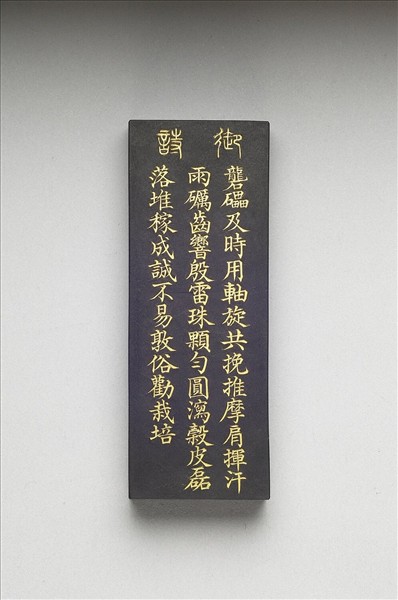 御詩
礱磑及時用軸旋共挽推摩肩揮汗
雨礪齒響殷雷珠顆勻圓瀉穀皮磊
落堆稼成誠不易敦俗勸栽培